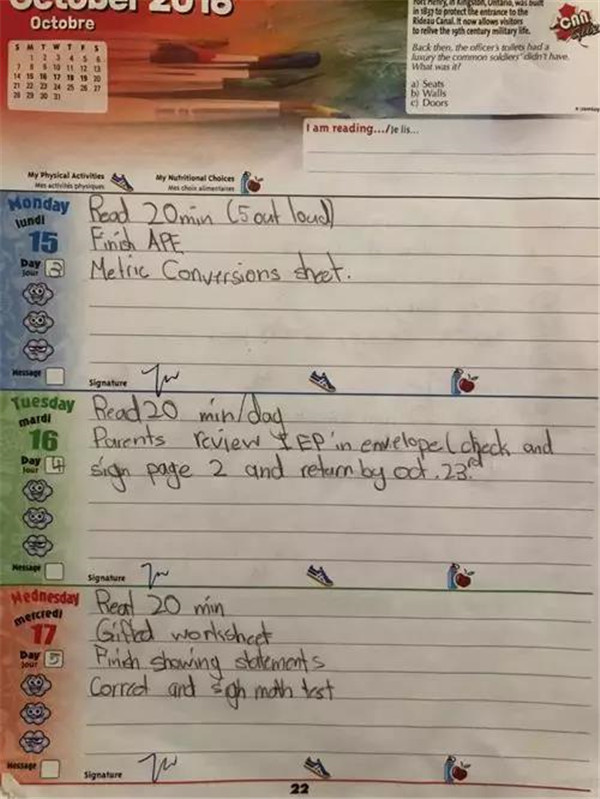 October 2018
Octobre
S M T W T F S
1 2 3 4 5 6
7 8 9 10 11 12 13
14 15 16 17 18 19 20
21 22 23 24 25 26 27
28 29 30 31
Fort Henry, in Kingston, Ontario, was built
in 1837 to protect the entrance to the
Rideau Canal. It now allows visitors
to relive the 19th century military life.
Back then, the officer's toilets had a
luxury the common soldiers didn't have.
What was it?
a) Seats
b) Walls
c) Doors
I am reading.../Je lis...
My Physical Activities
Mes activités physiques
My Nutritional Choices
Mes choix alimentaires
Monday
lundi
15
Day
Jour 3
Read 20min (5 out loud)
Finish APE
Metric Conversions sheet.
Message
Signature
Tuesday
mardi
16
Day
Jour 4
Read 20 min/day
Parents review IEP in envelope (check and
sign page 2 and return by oct. 23rd
Message
Signature
Wednesday
mercredi
17
Day
Jour 5
Read 20 min
Gifted worksheet
Finish showing statements
Correct and sign math test
Message
Signature
22